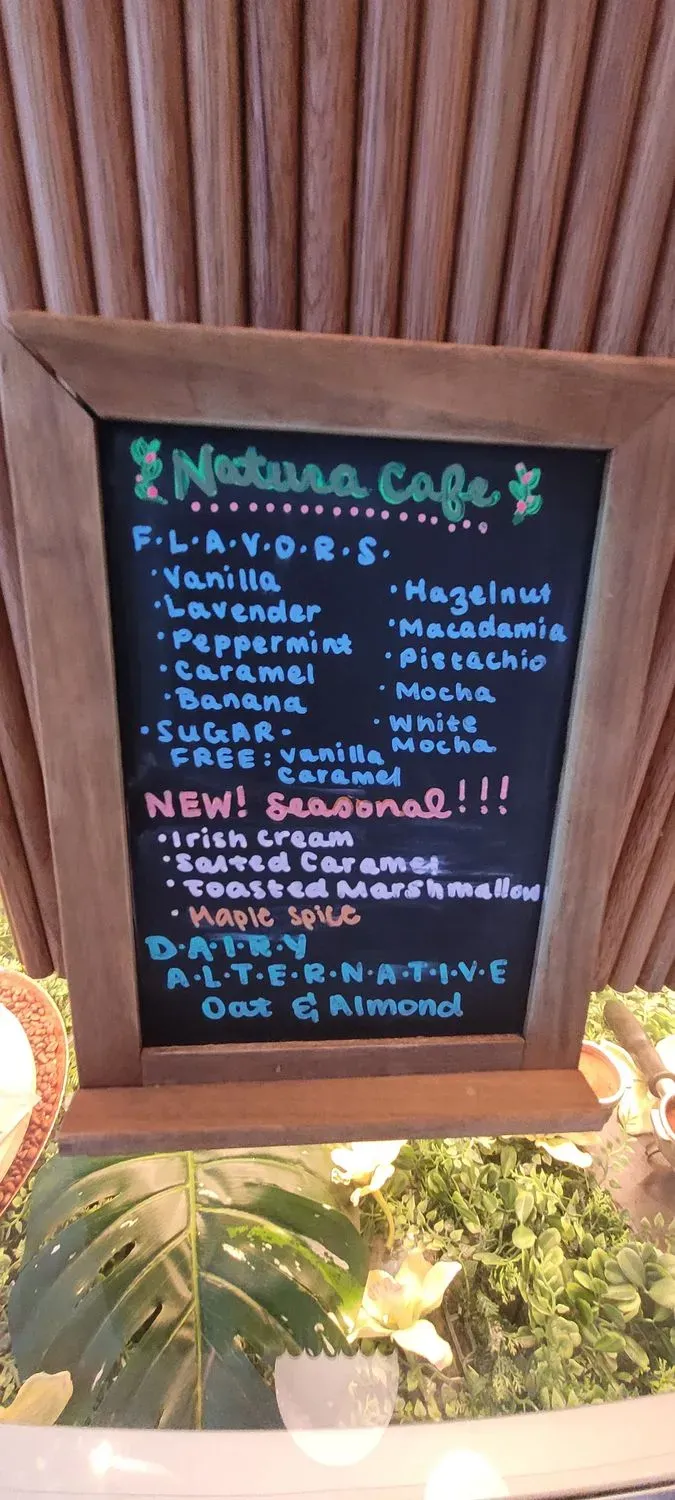 Natura Cafe
F.L.A.V.O.R.S.
•Vanilla
•Lavender
•Peppermint
•Caramel
•Banana
•Hazelnut
•Macadamia
•Pistachio
•Mocha
•White
Mocha
•SUGAR-
FREE: vanilla
caramel
NEW! Seasonal!!!
•Irish Cream
•Salted Caramel
•Toasted Marshmallow
•Maple Spice
D.A.I.R.Y
A.L.T.E.R.N.A.T.I.V.E
Oat & Almond